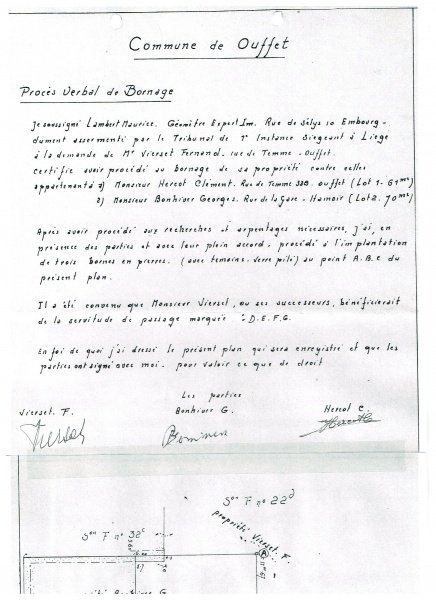 Commune de Ouffet
Procès Verbal de Bornage
Je soussigné Lambert Maurice. Géomètre Expert Im. Rue de Sélys 10 Embourg -
dument assermenté par le Tribunal de 1e Instance Siégeant à Liège
à la demande de Mr Vierset Fernand. rue de Temme - Ouffet.
Certifie avoir procédé au bornage de sa propriété contre celles
appartenant à 1) Monsieur Hercot Clément. Rue de Temme 38B. Ouffet (Lot 1. 61m²)
2) Monsieur Bonhiver Georges. Rue de la Gare - Hamoir (Lot 2. 70m²)
Après avoir procédé aux recherches et arpentages nécessaires, j'ai, en
présence des parties et avec leur plein accord, procédé à l'implantation
de trois bornes en pierres. (avec temoins. verre pilé) au point A.B.C du
présent plan.
Il a été convenu que Monsieur Vierset, ou ses successeurs, bénéficierait
de la servitude de passage marquée : D.E.F.G.
En foi de quoi j'ai dressé le présent plan qui sera enregistré et que les
parties ont signé avec moi. pour valoir ce que de droit
Les parties
Vierset. F. Bonhiver G. Hercot C.
Son F no 22d
Son F no 32c
propriété Vierset. F.
A
Bonhiver G.